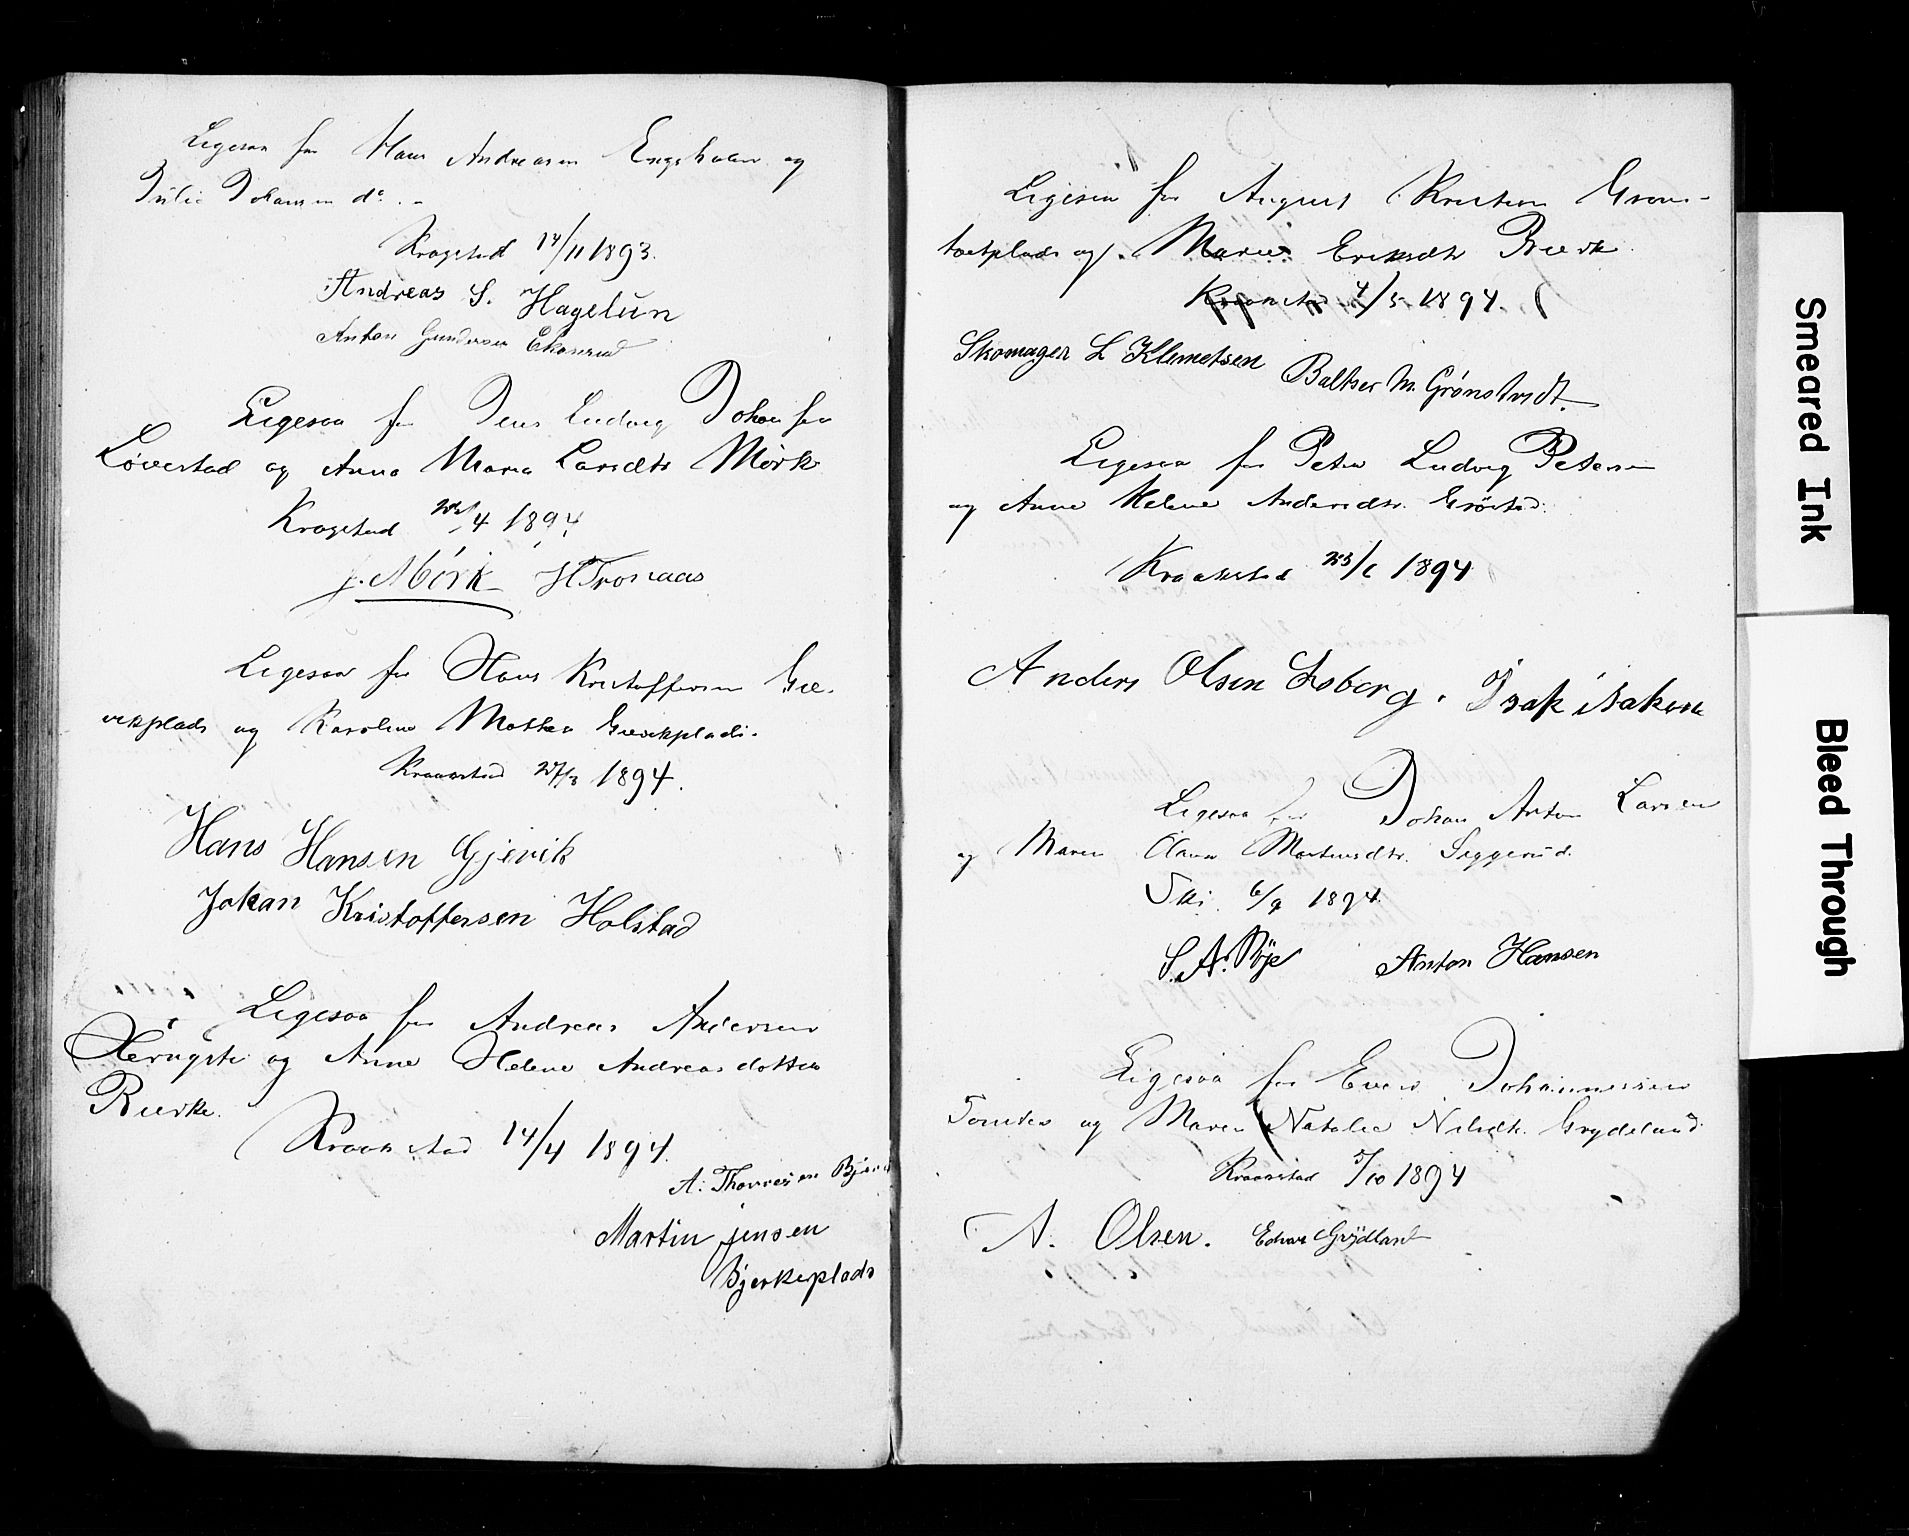 Ligesaa for Hans Andreasen Engsholm og
Julie Johansen do.
Kragstad 14/11 1893.
Andreas S. Hagelun
Anton Gundersen
Ligesaa for Jens Ludvig Johansen
Løvestad og Anna Maria Larsdtr Mørk
Kragstad 4 1894
J. Mørk H Tronaas
Ligesaa for Hans Kristoffersen Gie-
vikplads og Karoline Mathea Gievikplads.
Kraakstad 27/3 1894.
Hans Hansen Gjevik
Johan Kristoffersen Holstad
Ligesaa for Andreas Andersen
og Anne Helene Andreasdotter
Bierke.
Kraakstad 14/4 1894.
A. Thoresen
Martin Jensen
Bjerkeplads
Ligesaa for August Kristian Grøn-
tvetplads og Maren Eriksdtr Bierke
Kraakstad 4/5 1894.
Skomager L Klemetsen Baltser M. Grønstvedt.
Ligesaa for Peter Ludvig Petersen
og Anne Helene Andersdtr.
Kraakstad 23/6 1894
Anders Olsen Isak isaksen
Ligesaa for Johan Anton Larsen
og Maren Olava Martinsdtr. Siggerud.
Ski 6/9 1894.
S. A. Bøje Anton Hansen
Ligesaa for Evens Johannessen
Tomter og Maren Natalie Nilsdtr. Grydeland
Kraakstad 5/10 1894
A. Olsen. Edvar Grydland
Smeared Ink
Bleed Through